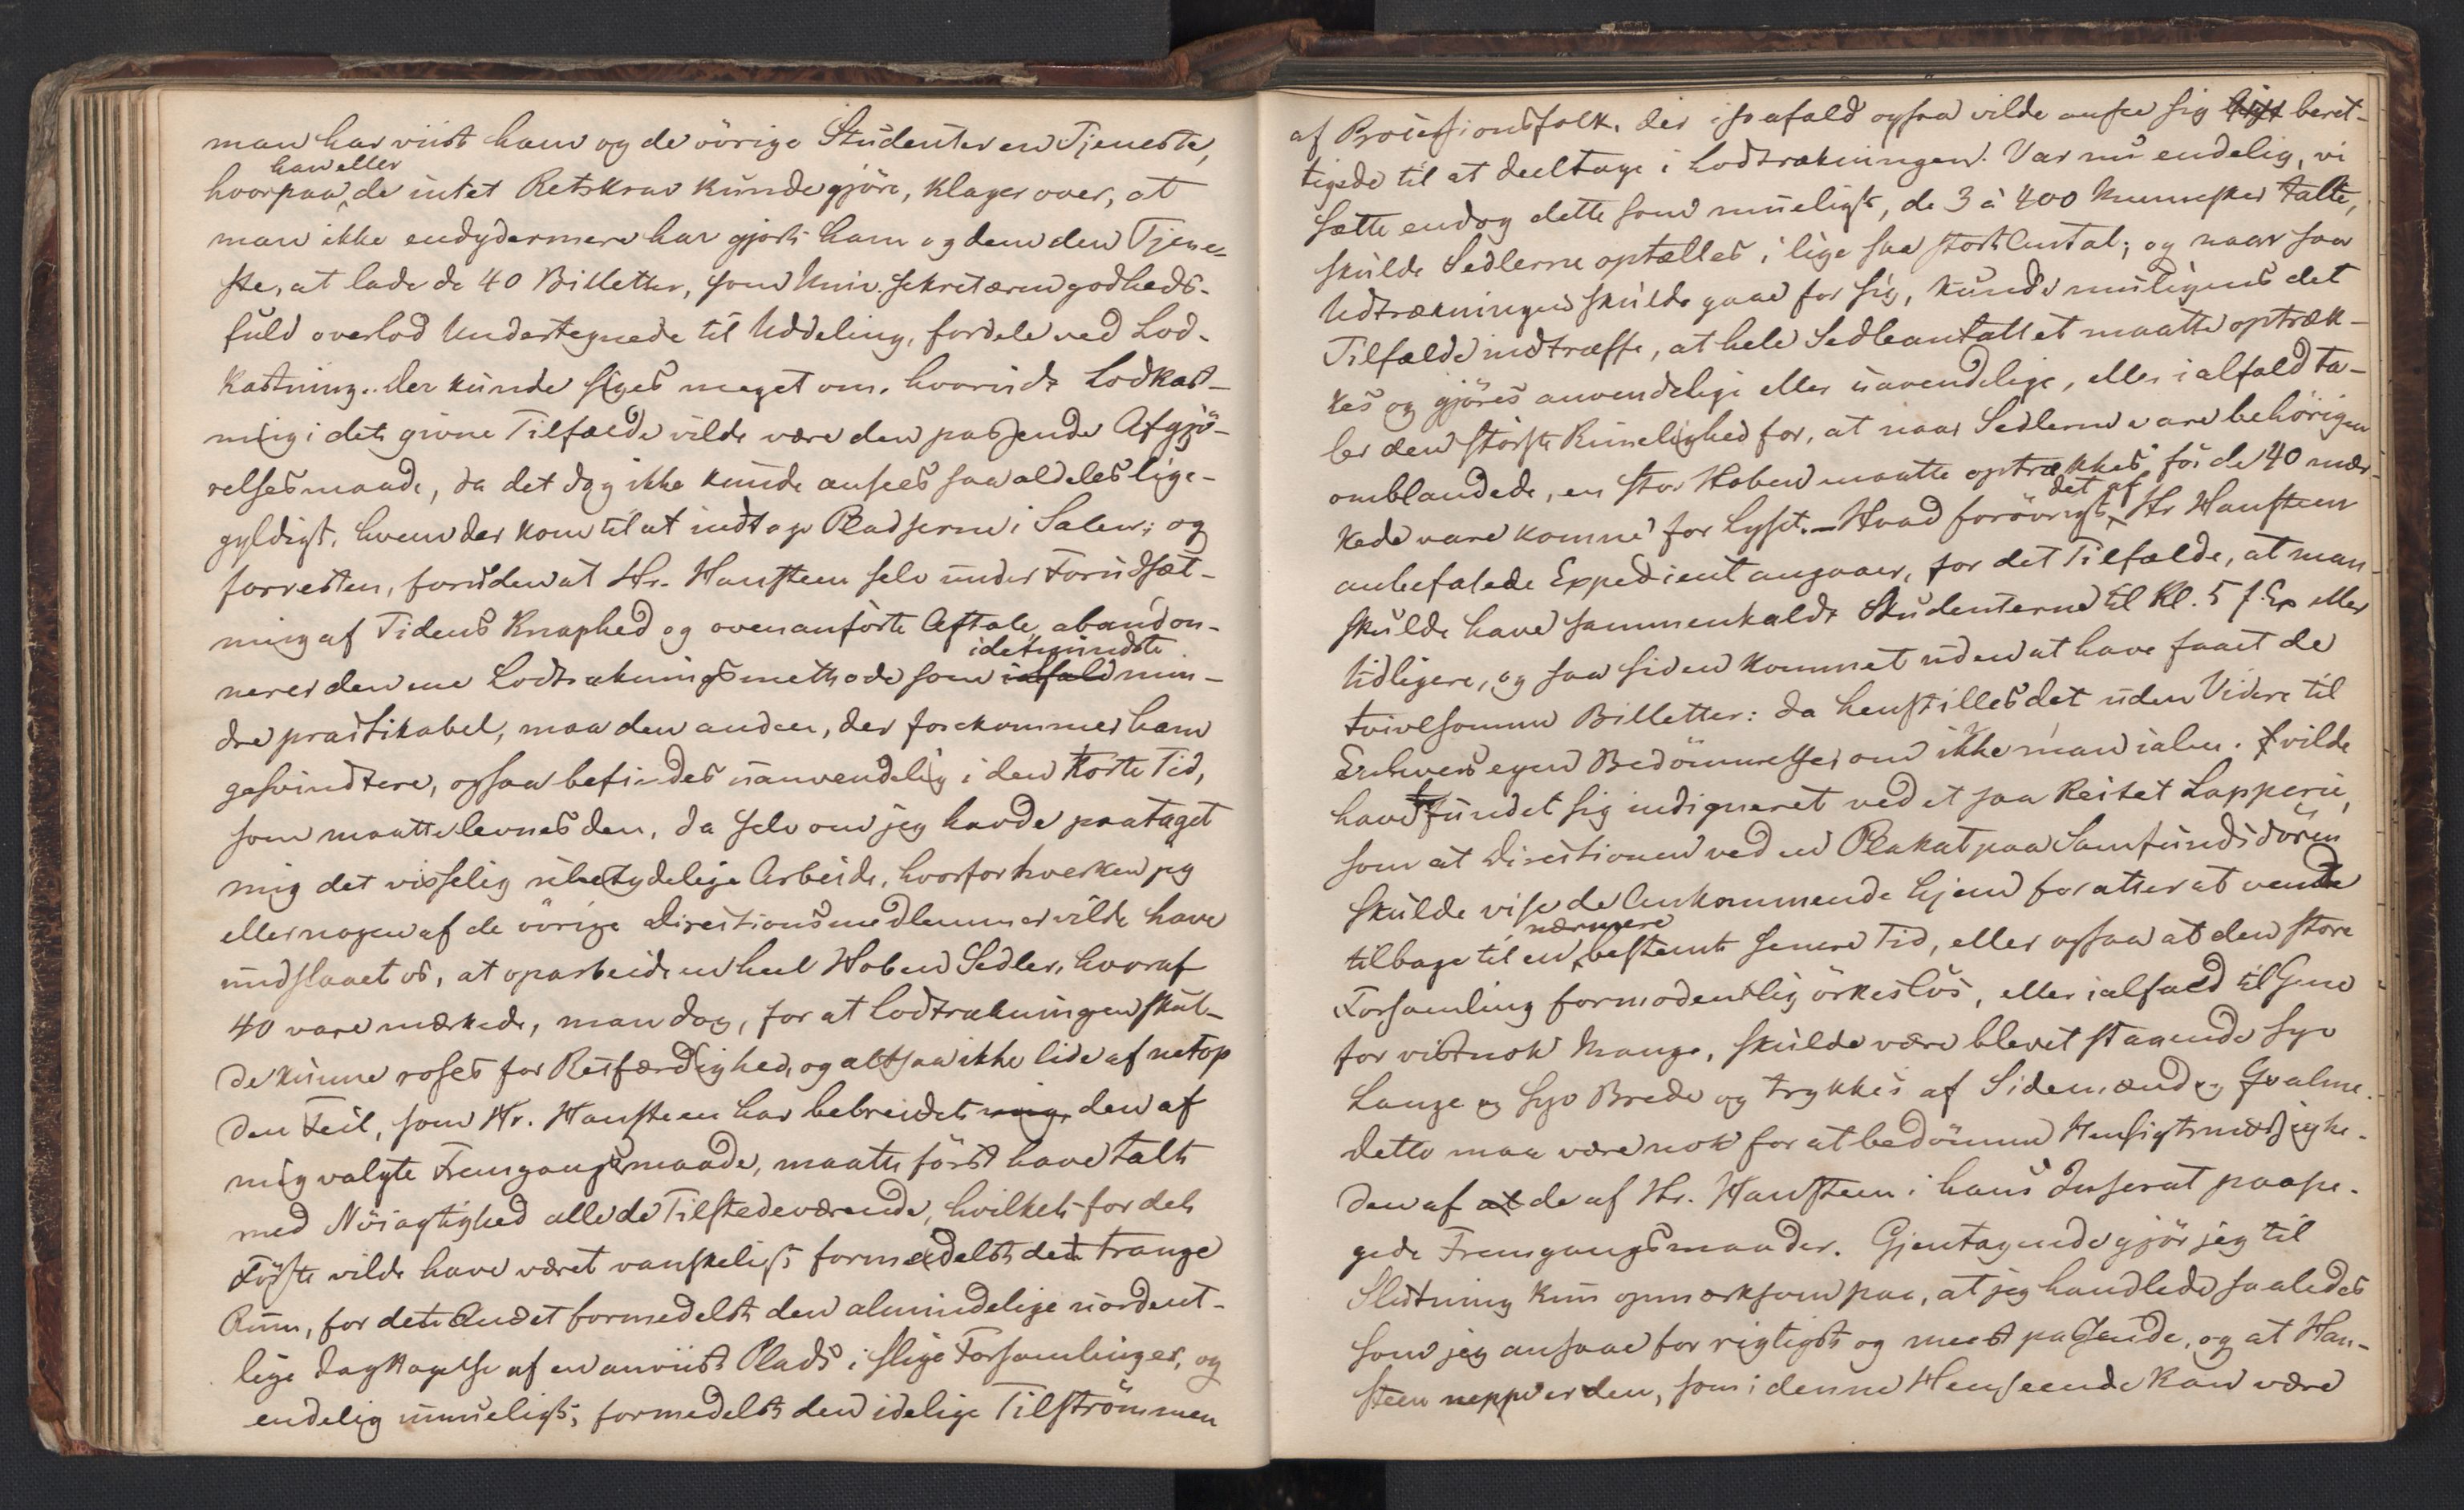 man har viist ham og de övrige Studenter en Tjeneste,
han eller
hvorpaa de intet Retskrav kunde gjöre, klager over, at
man ikke endydermere har gjort ham og dem den Tjene-
ste, at lade de 40 Billetter, som Univ. sekretæren godheds-
fuld overlod Undertegnede til Uddeling, fordele ved Lod-
kastning. Der kunde siges meget om, hvorvidt Lodkast-
ning i det givne Tilfælde vilde være den passende Afgjö-
relsesmaade, da det dog ikke kunde ansees saa aldeles lige-
gyldigt, hvem der kom til at indtage Pladserne i Salen; og
forresten, foruden at Hr. Hansteen selv under Forudsæt-
ning af Tidens Knaphed og ovenanförte Aftale, abandon-
idetmindste
nerer den ene Lodtrækningsmethode som ialfald min-
dre practikabel, maa den anden, der forekommer ham
gesvindtere, ogsaa befindes uanvendelig i den korte Tid,
som maatte levnes den, da selv om jeg havde paataget
mig det visselig ubetydelige Arbeide, hvorfor hverken jeg
eller nogen af de övrige Directionsmedlemmer vilde have
undslaaet os, at oparbeide en heel Hoben Sedler, hvoraf
40 vare mærkede, man dog, for at Lodtrækningen skul-
de kunne roses for Retfærdighed, og altsaa ikke lide af netop
den Feil, som Hr. Hansteen har bebreidet mig, den af
mig valgte Fremgangsmaade, maatte först have talt
med Nöiagtighed alle de Tilstedeværende, hvilket for det
Förste vilde have været vanskeligt formedelst det trange
Rum, for det Andet formedelst den almindelige uordent-
lige Iagttagelse af en anviist Plads i slige Forsamlinger, og
endelig umueligt, formedelst den idelige Tilströmmen
af Processionsfolk, der i saafald ogsaa vilde ansee sig beret-
tigede til at deeltage i Lodtrækningen. Var nu endelig, vi
sætte endog dette som mueligt, de 3 à 400 Mennesker talte,
skulde Sedlerne optælles, i lige saa stort Antal; og naar saa
Udtrækningen skulde gaae for sig, kunde mueligens det
Tilfælde indtræffe, at hele Sedleantallet maatte optræk-
kes og gjöres anvendelige eller uavendelige, eller ialfald ta-
ler den störste Rimelighed for, at naar Sedlerne vare behörigen
omblandede, en stor Hoben maatte optrækkes, för de 40 mær-
det af
kede vare komne for Lyset. – Hvad forövrigt Hr Hansteen
anbefalede Expedient angaaer, for det Tilfælde, at man
skulde have sammenkaldt Studenterne til Kl. 5 f. Ex eller
tidligere, og saa siden kommet uden at have faaet de
tvivlsomme Billetter: da henstilles det uden Videre til
Enhvers egen Bedömmelse, om ikke man vilde
have fundet sig indigneret ved et saa Reitet Lapperie,
som at Directionen ved en Plakat paa Samfundsdören
skulde vise de Ankommende hjem for atter at vende
nærmere
tilbage til en bestemt senere Tid, eller ogsaa at den store
Forsamling formodentlig örkeslös, eller ialfald til Gene
for vistnok Mange, skulde være blevet staaende syv
Lange og syv Brede og trykkes af Sidemænd og Qvalme.
Dette maa være nok for at bedömme Hensigtsmæssighe-
den af at de af Hr. Hansteen i hans Inserat paape-
gede Fremgangsmaader. Gjentagende gjör jeg til
Slutning kun opmærksom paa, at jeg handlede saaledes
som jeg ansaae for rigtigst og meest passende, og at Han-
steen neppe er den, som i denne Henseende kan være